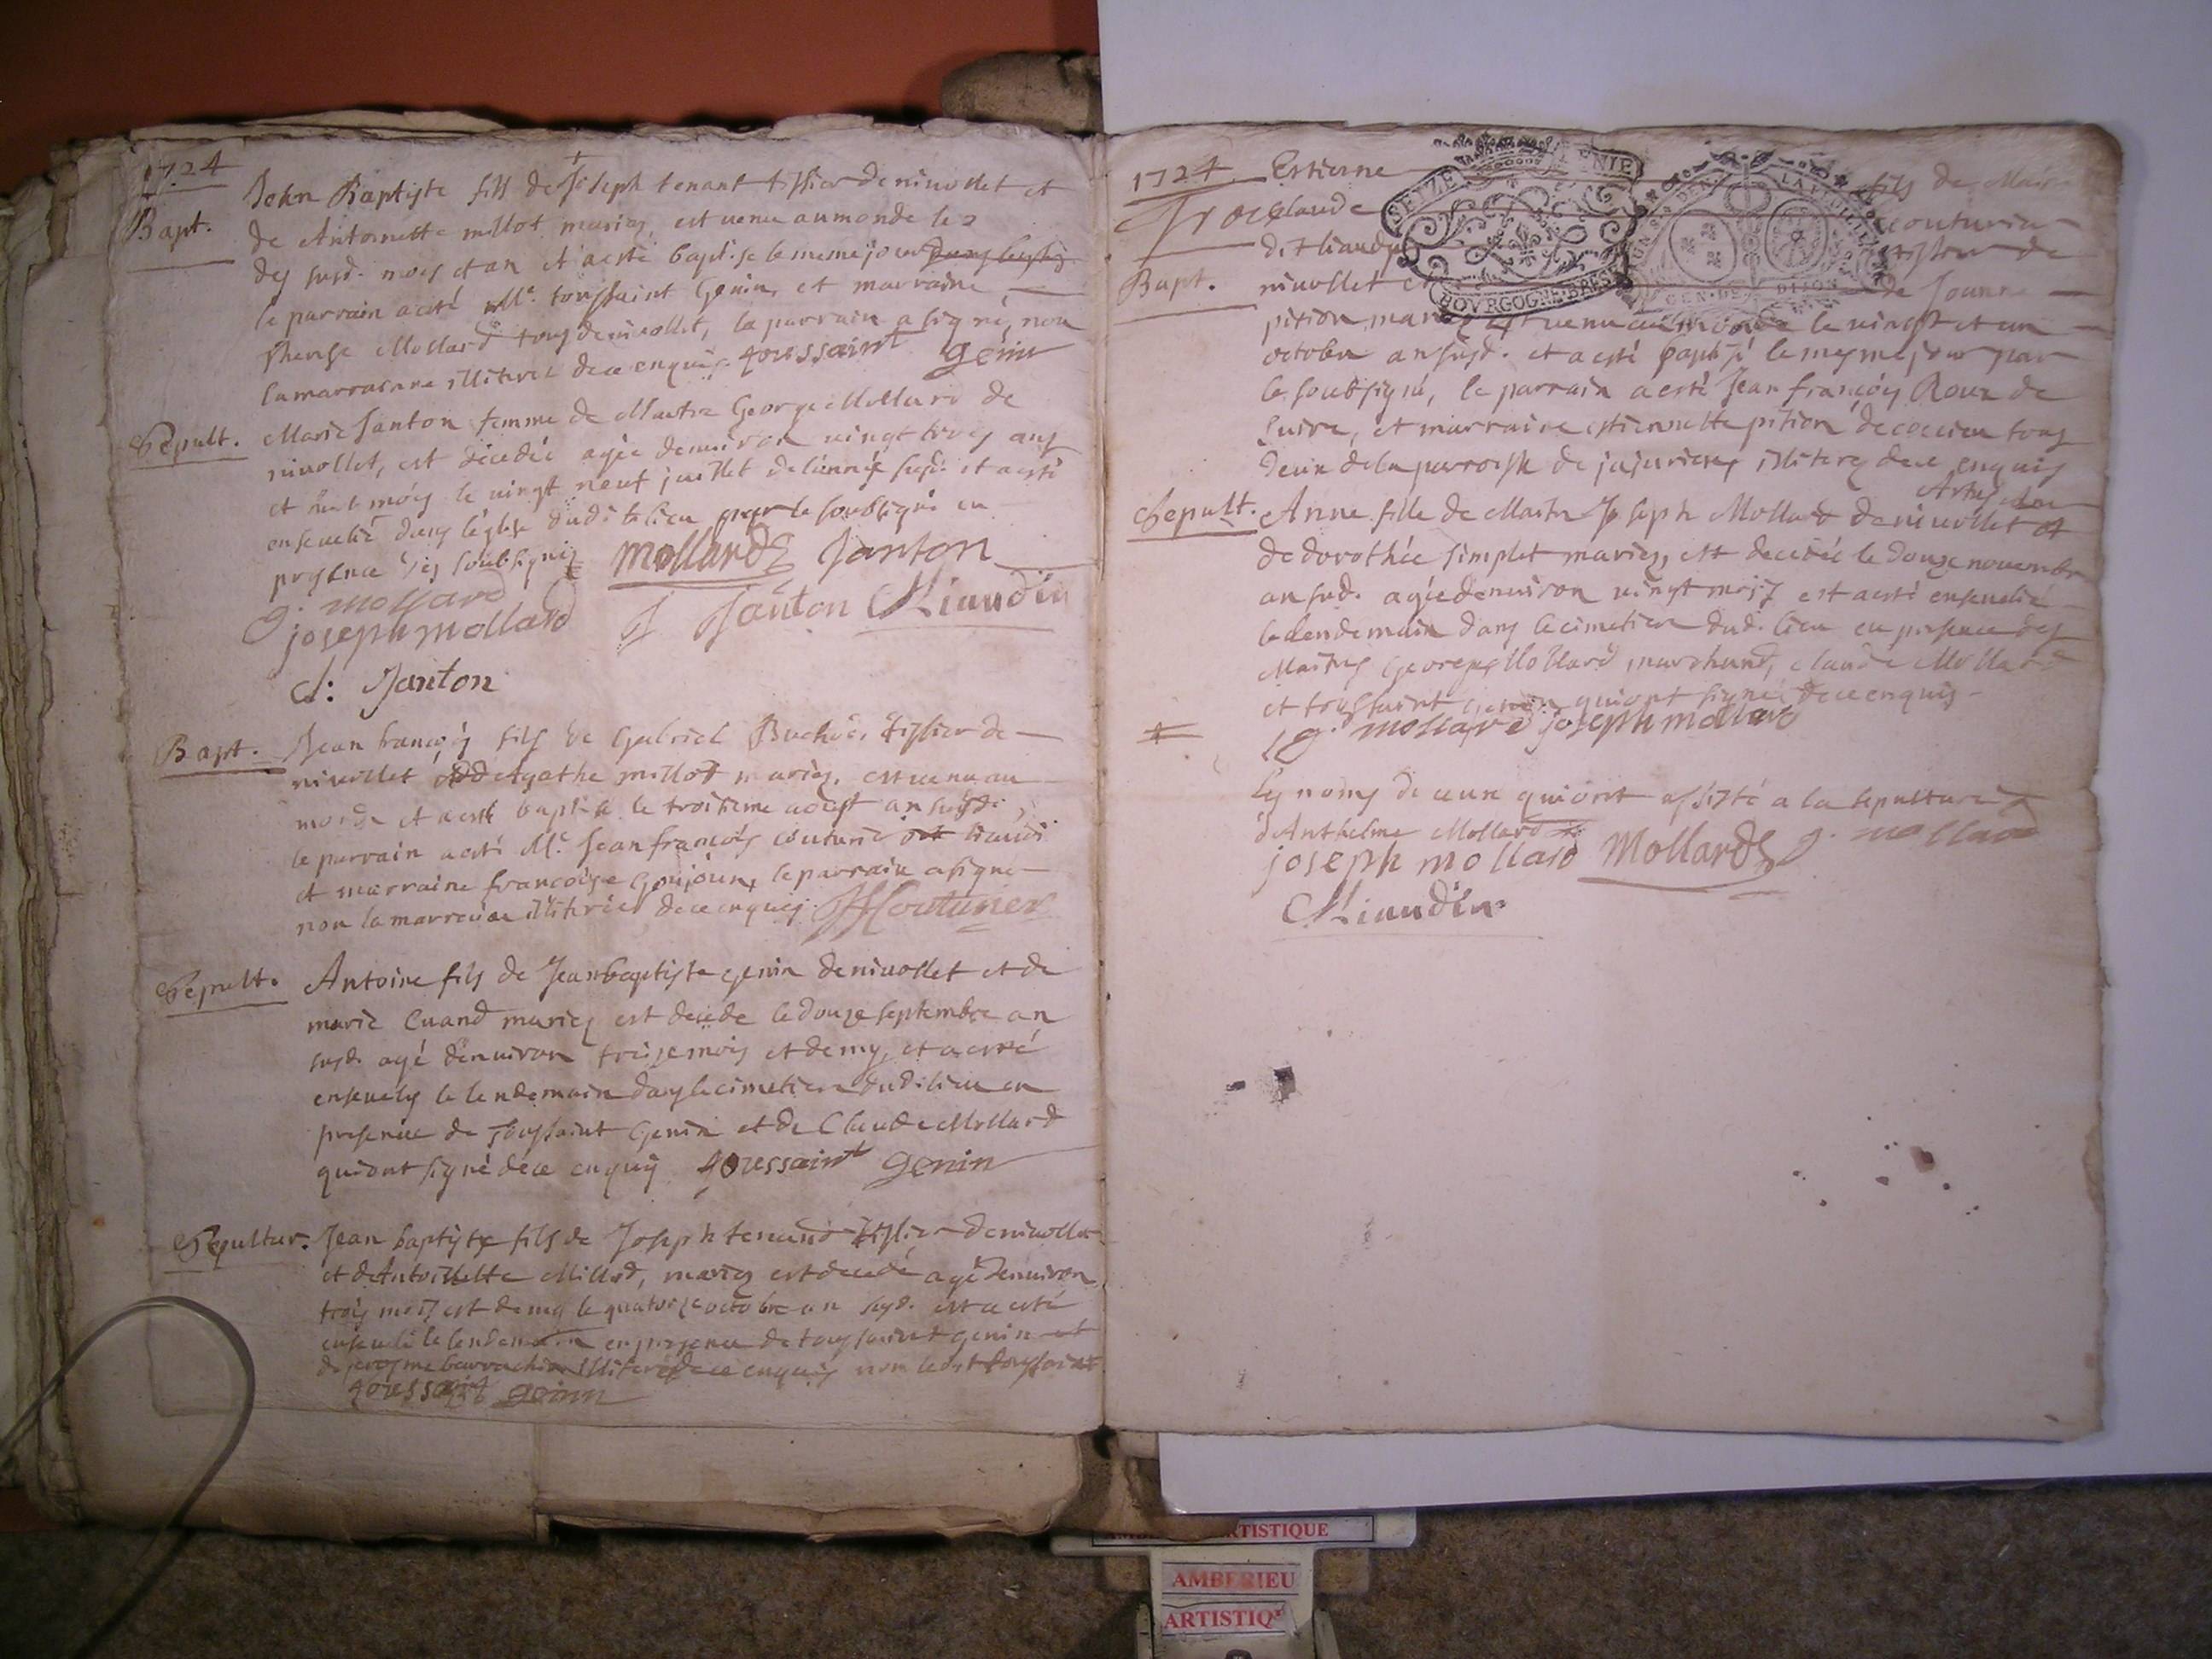 1724
Bapt.
Jean Baptiste fils de Joseph tenant tissier de nivollet et
de Antoinette millot mariez, est venu au monde le 2
des susd. mois et an et a esté baptisé le mesme jour
le parrain a esté Me. toussaint Genin, et marraine
Mollard tous de nivollet, le parrain a signé, non
la marraine illiterée de ce enquis toussaint genin
Sepult.
Marie Janton femme de Maitre George Mollard de
nivollet, est décedée agée denviron vingt trois ans
et huit mois le vingt neuf juillet de l'année susd. et a esté
ensevelie dans léglise dudit lieu par le soubsigné en
presence des soubsignez Mollard Janton
g. mollard J Janton C Liaudin
joseph mollard
d: Janton
Bapt.
Jean francois fils de Gabriel tissier de
nivollet Agathe millot mariez. est venu au
monde et a esté baptisé le troisieme aoust an susd.
le parrain a esté Me. Jean francois couturier liaudi
et marraine francoise Goujoun, le parrain a signé
non la marraine illiterée de ce enquis. JF Couturier
Sepult.
Antoine fils de Jean baptiste genin de nivollet et de
marie Cuand mariez est decede le douze septembre an
susd. agé denviron treize mois et demy, et a esté
ensevely le lendemain dans le cimetiere dud. lieu en
presence de toussaint Genin et de Claude Mollard
qui ont signé de ce enquis toussaint genin
Sepultur.
Jean baptiste fils de Joseph tenand tissier de nivollet
et de Antoinette Millod, mariez est decedé agé denviron
trois mois et demy le quatorze octobre an susd. et a esté
enseveli le lendemain en presence de toussaint genin et
de illiteré de ce enquis non ledit toussaint
toussaint genin
1724
Estienne fils de
Claude couturier
dit liaudy tissier de
Bapt.
nivollet et de Jeanne
pition mariez est venu au monde le vingt et un
octobre an susd. et a esté baptisé le mesme jour par
le soubsigné, le parrain a esté Jean françois Roux de
Cuire, et marraine estiennette pition de tous
deux de la parroisse de jujurieux illiterez de ce enquis
Sepult.
Anne fille de Maitre Joseph Mollard de nivollet et
de dorothée simplet mariez, est decedée le douze novembre
an sud. agée denviron vingt mois est a esté ensevelie
le lendemain dans le cimetiere dud. lieu en presence des
Maitres Georges Mollard marchand, claude Mollard
et toussaint genin qui ont signé de ce enquis
g. mollard joseph mollard
Les noms de ceux qui ont assisté a la sepulture
d'Anthelme Mollard
joseph mollard Mollard g. mollard
C Liaudin
SEIZE DENIE
BOVRGOGNE·BRESSE
GEN·DE DIJON
ARTISTIQUE
AMBERIEU
ARTISTIQ